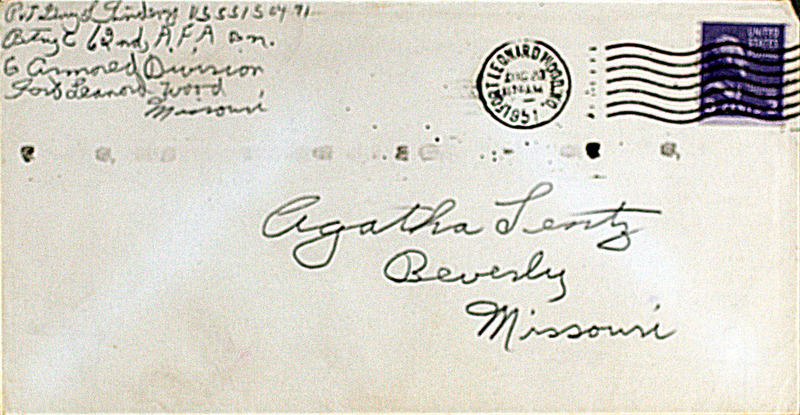 Pvt US 55 15 04 71
Btry C 62nd A.F.A Bn.
6 Armored Division
Fort Leanord Wood
Missouri
FORT LEONARD WOOD, MO.
AUG 20
AM
1951
UNITED
STATES
Agatha Lentz
Beverly
Missouri